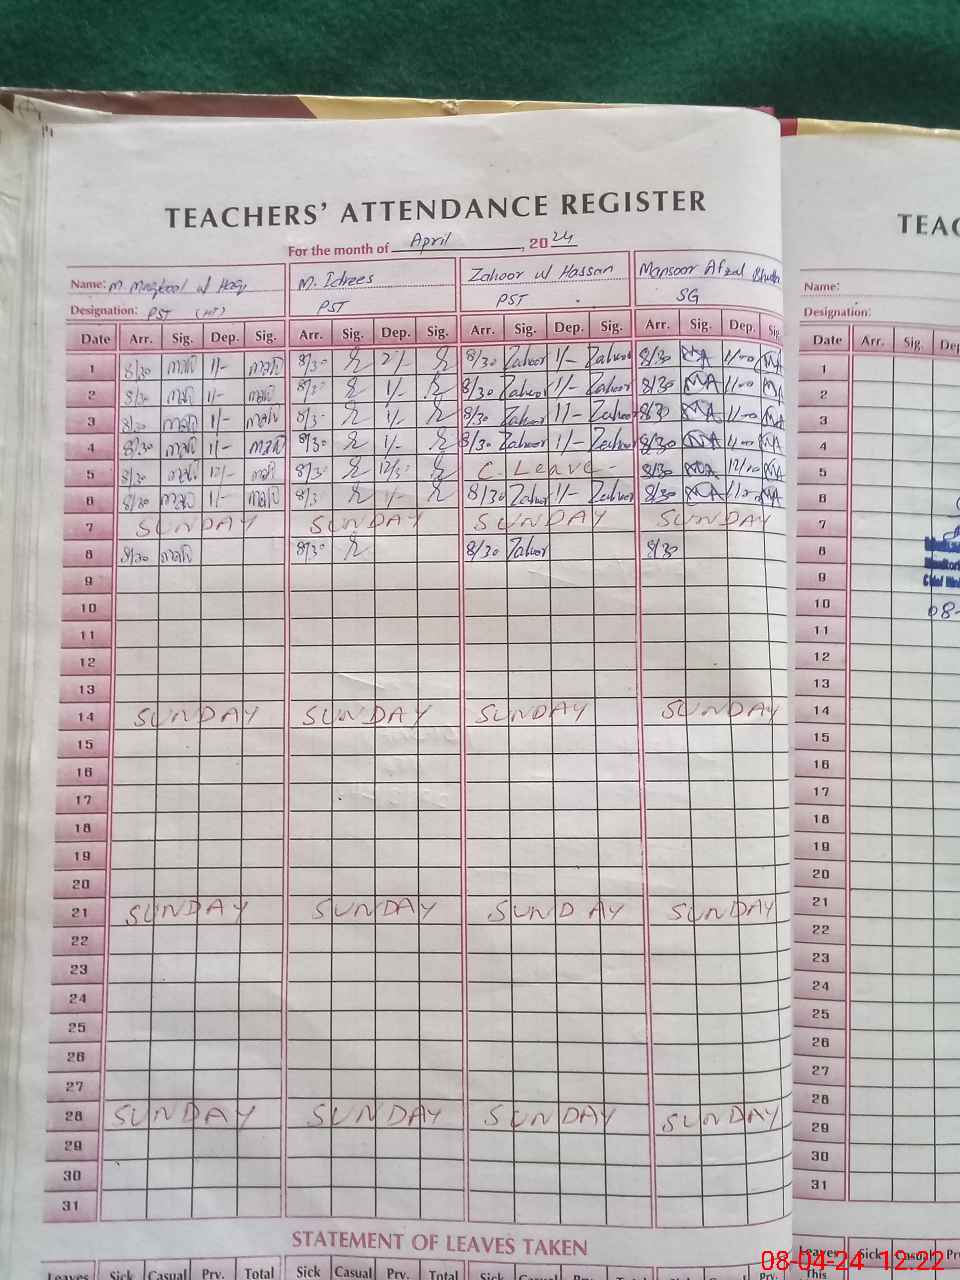 TEACHERS' ATTENDANCE REGISTER
For the month of April, 2024
Name: M. Maqbool ul Haq M. Idrees Zahoor ul Hassan Mansoor Afzal
Designation: PST (HT) PST PST SG
Date Arr. Sig. Dep. Sig. Arr. Sig. Dep. Sig. Arr. Sig. Dep. Sig. Arr. Sig. Dep. Sig.
1 8/30 1/- 8/30 2/- 8/30 Zahoor 1/- Zahoor 8/30 MA 1/00 MA
2 8/30 1/- 8/30 1/- 8/30 Zahoor 1/- Zahoor 8/30 MA 1/00 MA
3 8/30 1/- 8/30 1/- 8/30 Zahoor 1/- Zahoor 8/30 MA 1/00 MA
4 8/30 1/- 8/30 1/- 8/30 Zahoor 1/- Zahoor 8/30 MA 1/00 MA
5 8/30 12/- 8/30 12/30 C. Leave - 8/30 MA 12/00 MA
6 8/30 1/- 8/30 1/- 8/30 Zahoor 1/- Zahoor 8/30 MA 1/00 MA
7 SUNDAY SUNDAY SUNDAY SUNDAY
8 8/30 8/30 8/30 Zahoor 8/30
9
10
11
12
13
14 SUNDAY SUNDAY SUNDAY SUNDAY
15
16
17
18
19
20
21 SUNDAY SUNDAY SUNDAY SUNDAY
22
23
24
25
26
27
28 SUNDAY SUNDAY SUNDAY SUNDAY
29
30
31
STATEMENT OF LEAVES TAKEN
Leaves Sick Casual Prv. Total Sick Casual Prv. Total Sick Casual Prv. Total Sick Casual Prv.
Name:
Designation:
Date Arr. Sig.
1
2
3
4
5
6
7
8
9
10
08-
11
12
13
14
15
16
17
18
19
20
21
22
23
24
25
26
27
28
29
30
31
Leaves Sick Casual
This
08-04-24 12:22